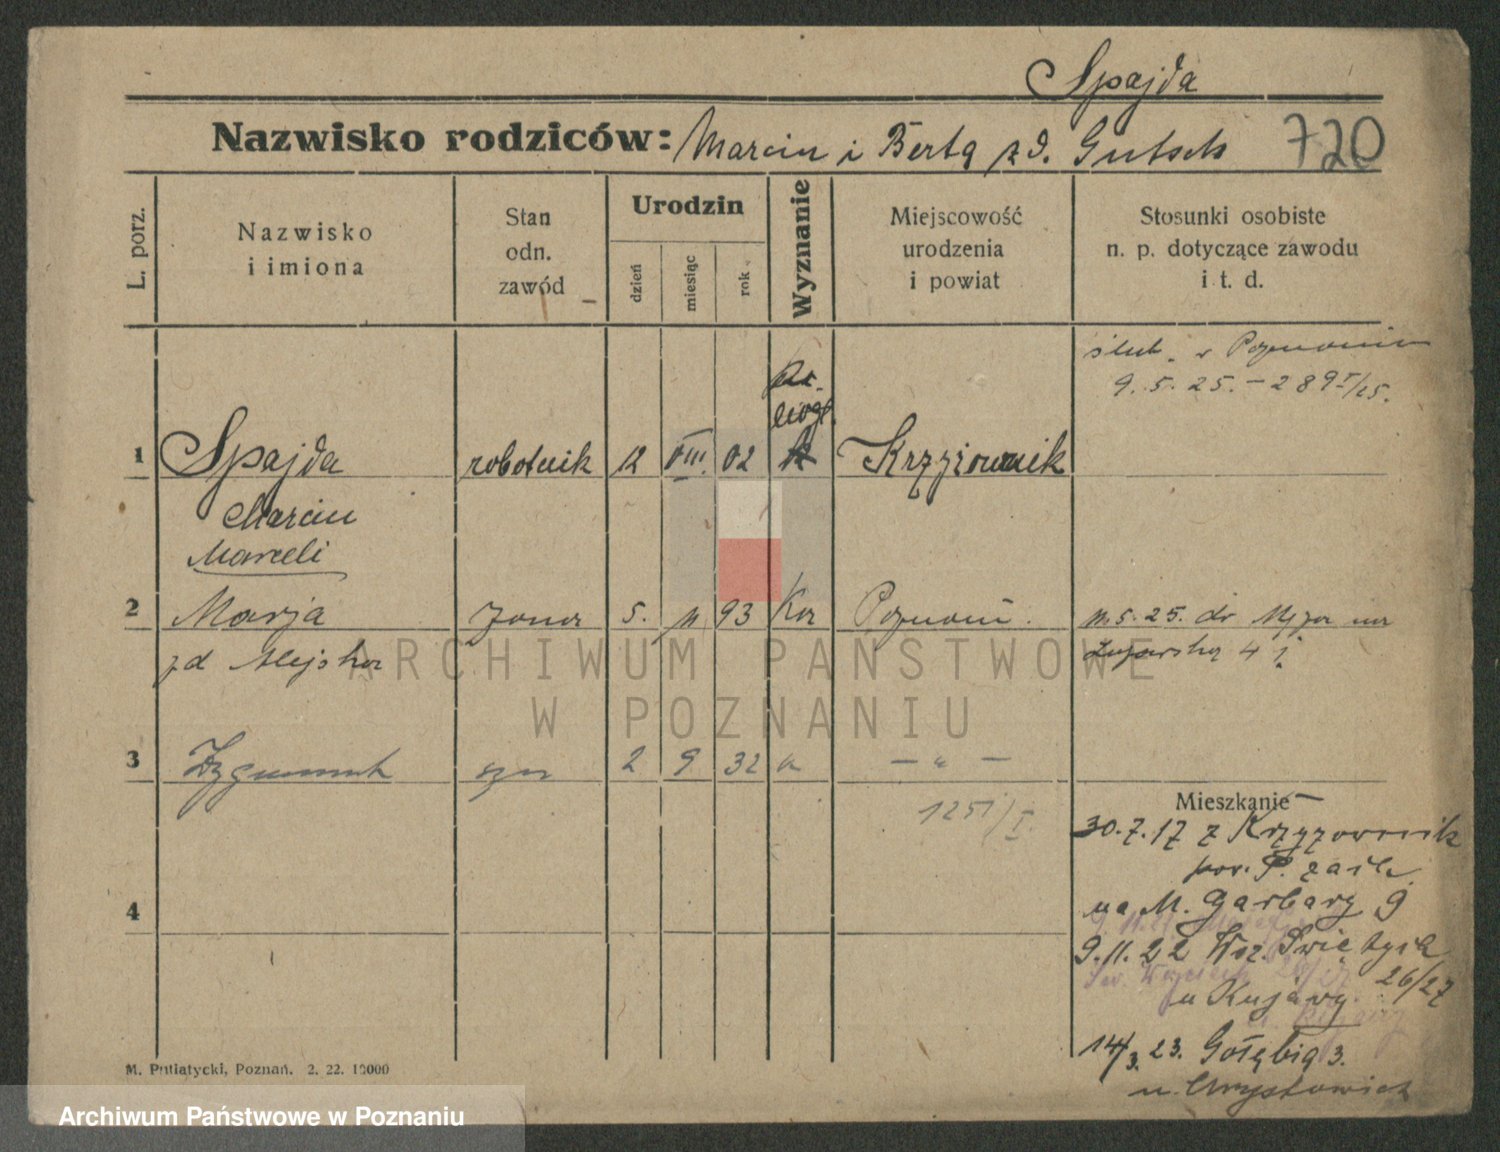 Spajda
Nazwisko rodziców: Marcin i Berta zd. Gutsch 720
L. porz.
Nazwisko i imiona
Stan odn. zawód
Urodzin
dzień miesiąc rok
Wyznanie
Miejscowość urodzenia i powiat
Stosunki osobiste n. p. dotyczące zawodu i t. d.
ślub. w Poznaniu
9. 5. 25. - 289 I/25.
ewgl.
1 Spajda robotnik 12 VIII. 02 Krzyżownik
Marcin
Marceli
2 Marja żona 5. 93 Kat Poznań.
zd
11. 5. 25. do na
4
3 Zygmunt syn 2 9 32 — " —
1251/I.
Mieszkanie
30. 7. 17 z Krzyżownik
pow. P.
na M. Garbary 9
9. 11. 22 Wsz. Świętych
26/27
u Kujawy
4
14/3. 23. Gołębia 3.
u.
M. Putiatycki, Poznań. 2. 22. 10000
ARCHIWUM PAŃSTWOWE
W POZNANIU
Archiwum Państwowe w Poznaniu